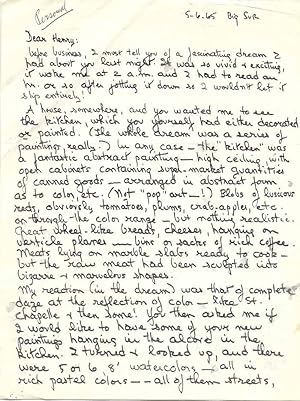 Personal
5-6-65 Big Sur
Dear Henry:
Before business, I must tell you of a fascinating dream I
had about you last night. It was so vivid & exciting,
it woke me at 2 a.m. and I had to read an
hr. or so after jotting it down so I wouldn't let it
slip entirely!
A house, somewhere, and you wanted me to see
the kitchen, which you yourself had either decorated
or painted. (The whole dream was a series of
paintings, really.) In any case – the "kitchen" was
a fantastic abstract painting – high ceiling, with
open cabinets containing super-market quantities
of canned goods – arranged in abstract form
as to color, etc. (Not "pop art" –.) Blobs of luscious
reds, obviously tomatoes, plums, crab-apples, etc.
on through the color range – but nothing realistic.
Great wheel-like breads, cheeses, hanging on
verticle planes – bins or sacks of rich coffee.
Meats lying on marble slabs ready to cook –
but the raw meat had been sculpted into
bizarre & marvelous shapes.
My reaction (in the dream) was that of complete
daze at the reflection of color – like St.
Chapelle & then some! You then asked me if
I would like to have some of your new
paintings hanging in the alcove in the
kitchen. I turned & looked up, and there
were 5 or 6, 8' watercolors – all in
rich pastel colors – – all of them streets,